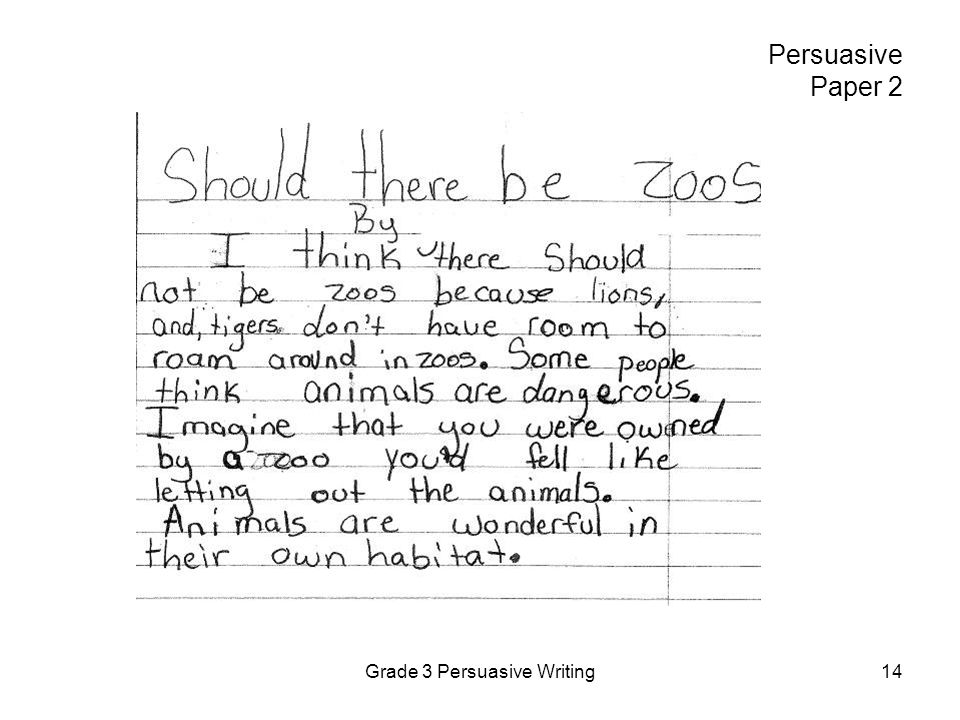 Persuasive
Paper 2
Should there be zoos
By
I think there should
not be zoos because lions,
and, tigers don't have room to
roam around in zoos. Some people
think animals are dangerous.
Imagine that you were owned
by a zoo you'd fell like
letting out the animals.
Animals are wonderful in
their own habitat.
Grade 3 Persuasive Writing
14